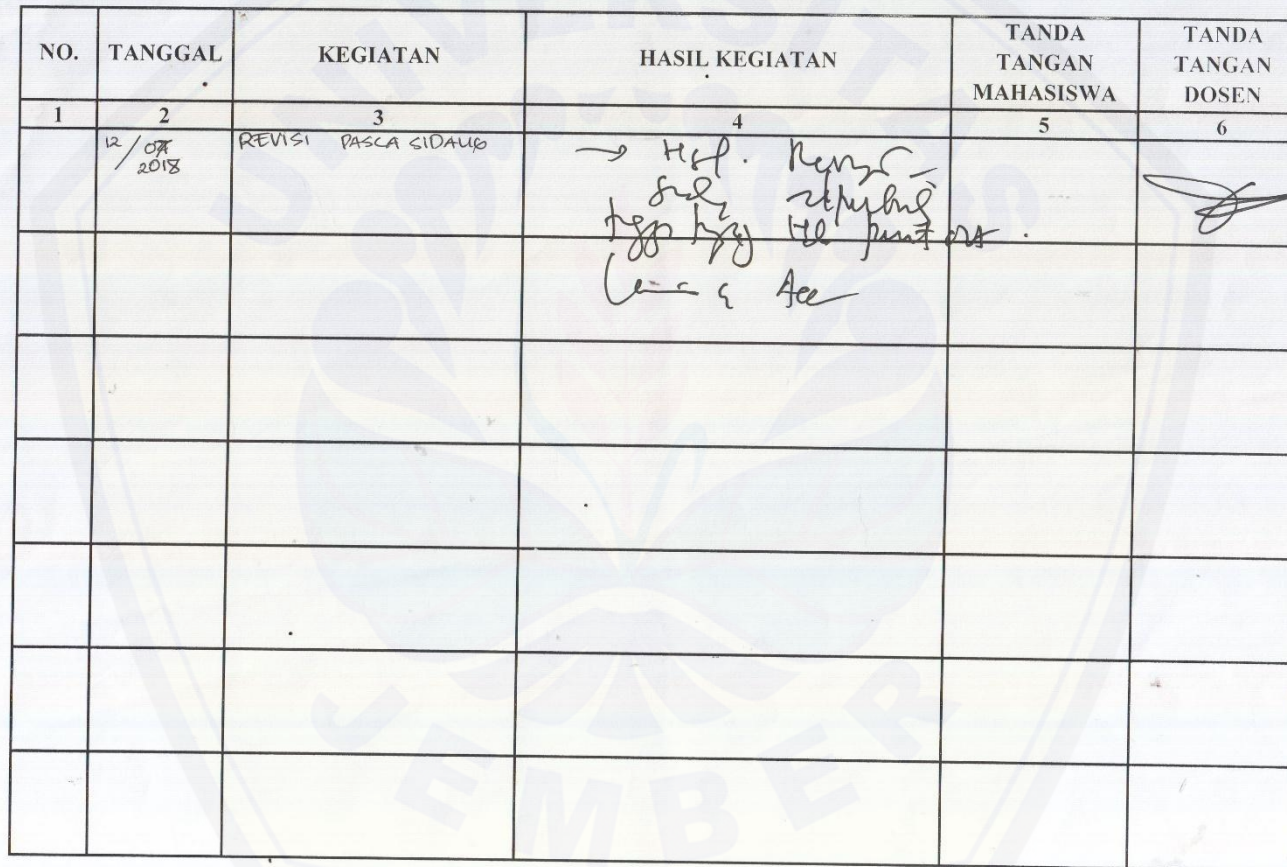 NO. TANGGAL KEGIATAN HASIL KEGIATAN TANDA TANGAN MAHASISWA TANDA TANGAN DOSEN
1 2 3 4 5 6
12/07 2018 REVISI PASCA SIDANG → Hsl.
Acc
UNIVERSITAS
JEMBER